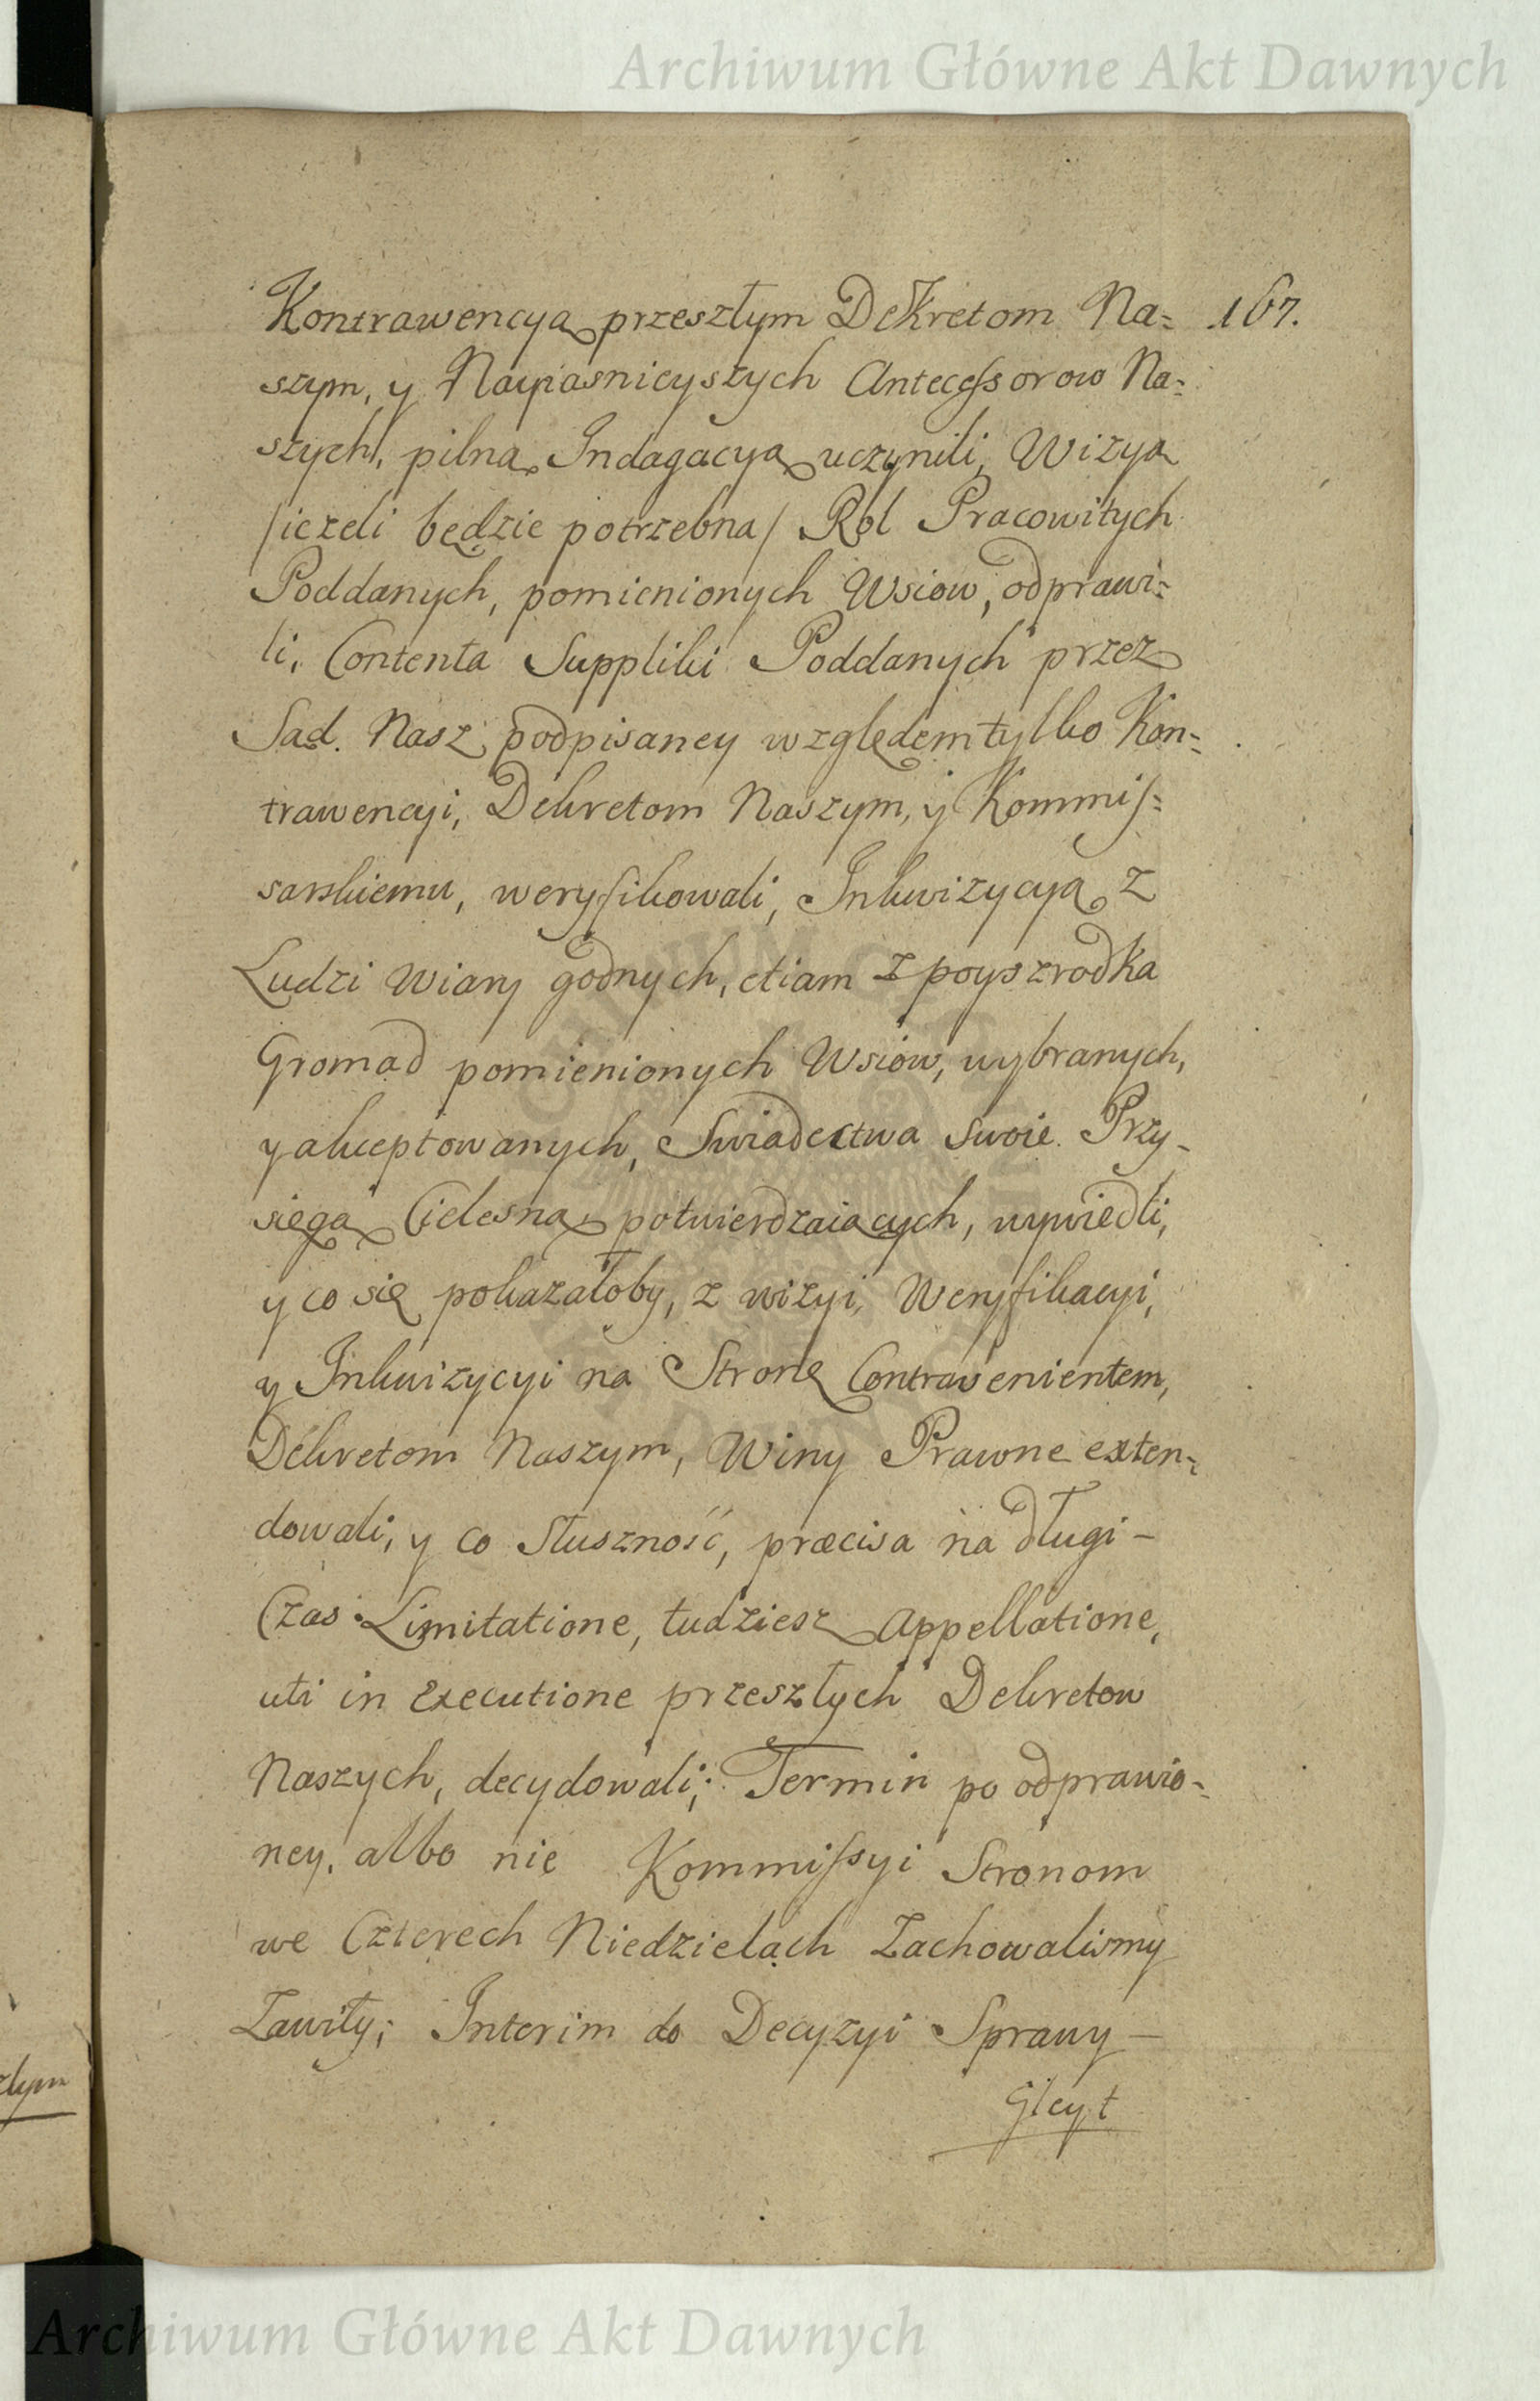 Archiwum Główne Akt Dawnych
Kontrawencyą przeszłym Dekretom Na= 167.
szym, y Nayiasnieyszych Antecessorow Na=
szych, pilną Indagacyą uczynili, Wizyą
/ieżeli będzie potrzebna/ Rol Pracowitych
Poddanych, pomienionych Wsiow, odprawi=
li, Contenta Suppliki Poddanych przez
Sąd Nasz podpisaney względem tylko Kon=
trawencyi, Dekretom Naszym, y Kommis=
sarskiemu, weryfikowali, Inkwizycyą z
Ludzi Wiary godnych, etiam z poyszrodka
Gromad pomienionych Wsiow, wybranych,
y akceptowanych, Swiadectwa swoie Przy-
sięgą Cielesną potwierdzaiących, wywiedli,
y co się pokazałoby, z wizyi, Weryfikacyi,
y Inkwizycyi na Stronę Contravenientem,
Dekretom Naszym, Winy Prawne exten=
dowali, y co Słuszność, præcisa na długi -
Czas Limitatione, tudziesz Appellatione,
uti in Executione przeszłych Dekretow
Naszych, decydowali; Termin po odprawio=
ney, albo nie Kommissyi Stronom
we Czterech Niedzielach Zachowalismy
Zawity; Interim do Decyzyi Sprawy -
Gleyt
złym
Archiwum Główne Akt Dawnych